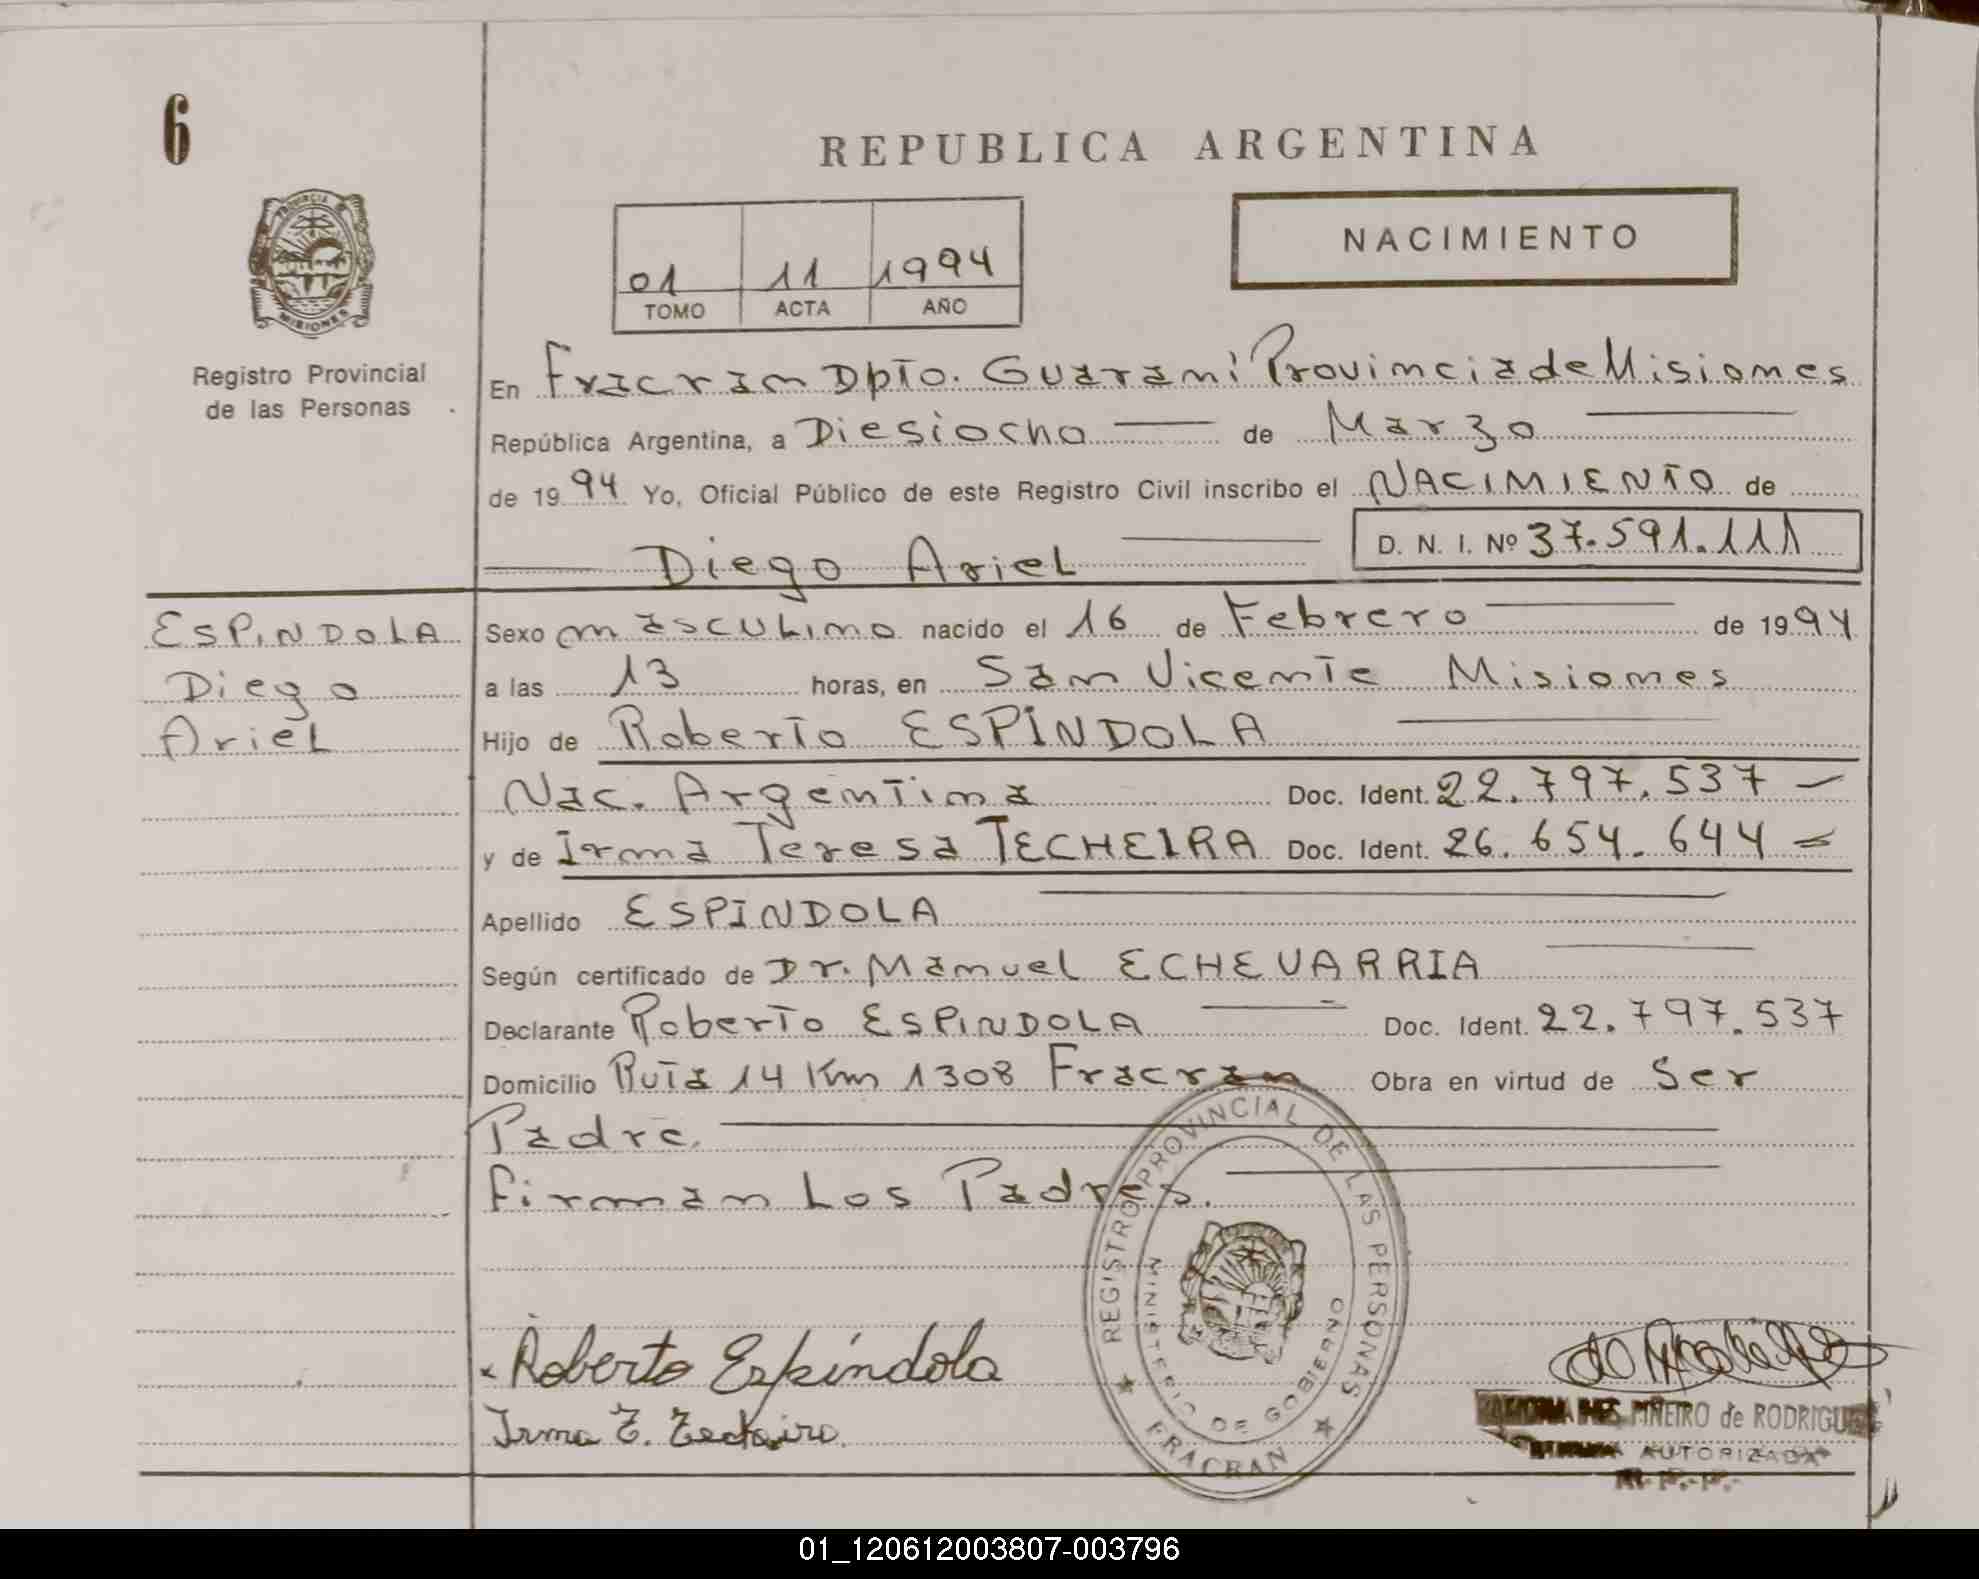 6
REPUBLICA ARGENTINA
PROVINCIA
MISIONES
Registro Provincial
de las Personas
01 11 1994
TOMO ACTA AÑO
NACIMIENTO
En Fracran Dpto. Guarani Provincia de Misiones
República Argentina, a Diesiocho de Marzo
de 1994 Yo, Oficial Público de este Registro Civil inscribo el NACIMIENTO de
Diego Ariel D. N. I. Nº 37.591.111
ESPINDOLA
Diego
Ariel
Sexo masculino nacido el 16 de Febrero de 1994
a las 13 horas, en San Vicente Misiones
Hijo de Roberto ESPINDOLA
Nac. Argentina Doc. Ident. 22.797.537
y de Irma Teresa TECHEIRA Doc. Ident. 26.654.644
Apellido ESPINDOLA
Según certificado de Dr. Manuel ECHEVARRIA
Declarante Roberto ESPINDOLA Doc. Ident. 22.797.537
Domicilio Ruta 14 Km 1308 Fracran Obra en virtud de Ser
Padre.
Firman Los Padres.
REGISTRO PROVINCIAL DE LAS PERSONAS
MINISTERIO DE GOBIERNO
FRACRAN
Roberto Espíndola
Irma T.
PIÑEIRO de RODRIGUE
AUTORIZADA
01_120612003807-003796